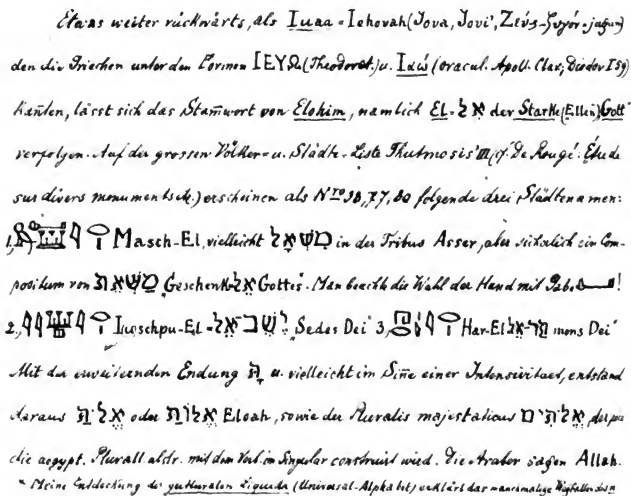 Etwas weiter rückwärts, als Iuaa = Iehovah (Jova, Jovi', Ζεύς - ζυγόν - jugum)
den die Griechen unter den Formen ΙΕΥΩ (Theodoret.) u. Ιαώ (oracul. Apoll. Clar, Diodor I 59)
kañten, lässt sich das Stam̄wort von Elohim, namlich EL = אל der Starke (Ellen) Gott"
verfolgen. Auf der grossen Völker- u. Städte-Liste Thutmosis' III (cf. De Rougé: Étude
sur divers monuments etc.) erscheinen als Nᵒ 38, 77, 80 folgende drei Städtenamen:
1, Masch-El, vielleicht משאל in der Tribus Asser, aber sicherlich ein Com-
positum von משאת Geschenk אל Gottes". Man beachte die Wahl der Hand mit Gabe !
2, Iuoschpu-El = ישב־אל „Sedes Dei" 3, Har-El הר־אל mons Dei"
Mit der erweiternden Endung ה u. vielleicht im Siñe einer Intensivitaet, entstand
daraus אלה oder אלוה Eloah, sowie der Pluralis majestaticus אלהים, der
die aegypt. Plurall abstr. mit dem Verb. im Singular construirt wird. Die Araber sagen Allah.
* Meine Entdeckung der gutturalen Liquida (Universal-Alphabet) erklärt das manchmalige Wegfallen